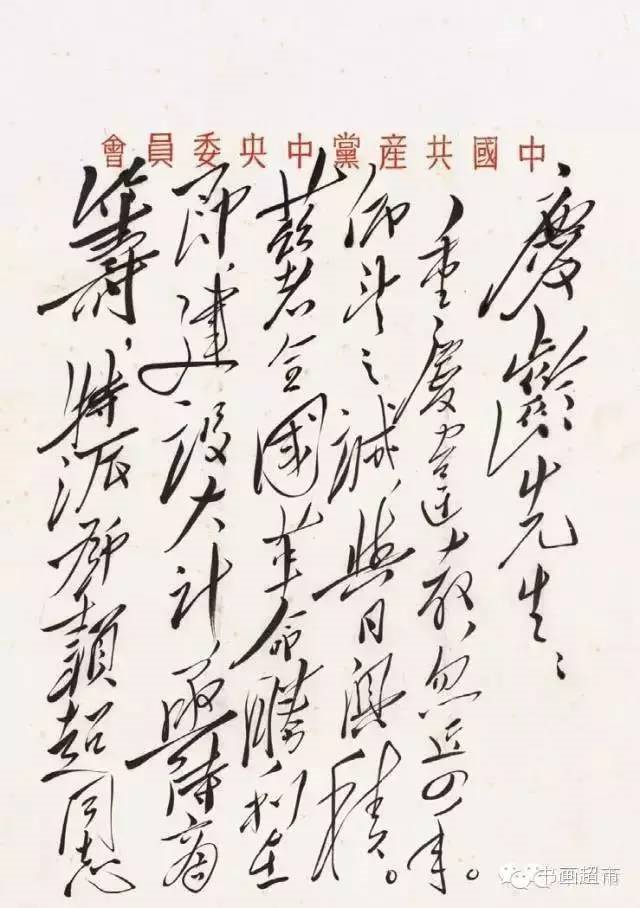 中國共產黨中央委員會
慶齡先生：
重慶違教，忽近四年。
仰望之誠，與日俱積。
茲者全國革命勝利在
即，建設大計，亟待商
籌，特派鄧穎超同志
书画超市